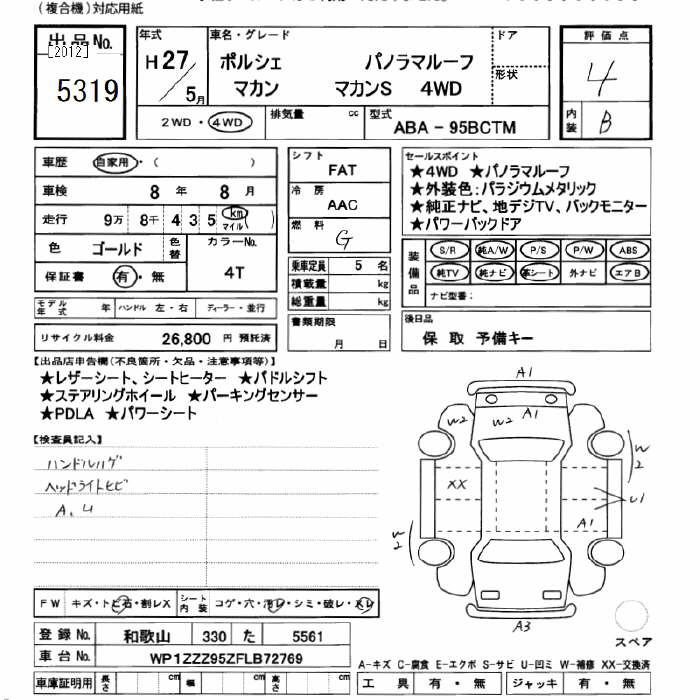 (複合機)対応用紙
出品No.
[2012]
5319
年式
H27/5月
車名・グレード
ポルシェ パノラマルーフ
マカン マカンS 4WD
ドア
形状
評価点
4
内装
B
2WD・4WD
排気量 cc
型式
ABA - 95BCTM
車歴 自家用・( )
車検 8 年 8 月
走行 9万 8千 4 3 5 km マイル ( )
色 ゴールド 色替
カラーNo.
4T
保証書 有・無
シフト
FAT
冷房
AAC
燃料
G
乗車定員 5 名
積載量 kg
総重量 kg
書類期限
月 日
セールスポイント
★4WD ★パノラマルーフ
★外装色:パラジウムメタリック
★純正ナビ、地デジTV、バックモニター
★パワーバックドア
装備品
S/R 純A/W P/S P/W ABS
純TV 純ナビ 革シート 外ナビ エアB
ナビ型番:
モデル年式 年 ハンドル 左・右 ディーラー・並行
リサイクル料金 26,800 円 預託済
後日品
保 取 予備キー
【出品店申告欄(不良箇所・欠品・注意事項等)】
★レザーシート、シートヒーター ★パドルシフト
★ステアリングホイール ★パーキングセンサー
★PDLA ★パワーシート
【検査員記入】
ハンドルハゲ
ヘッドライトヒビ
A.U
A1
W2 W2 A1
W2
XX
U1
A1
W2
A3
スペア
FW キズ・トビ石・割レX
シート内装 コゲ・穴・汚レ・シミ・破レ・スレ
登録No. 和歌山 330 た 5561
車台No. WP1ZZZ95ZFLB72769
A-キズ C-腐食 E-エクボ S-サビ U-凹ミ W-補修 XX-交換済
車庫証明用 長さ cm 幅 cm 高さ cm
工具 有・無 ジャッキ 有・無